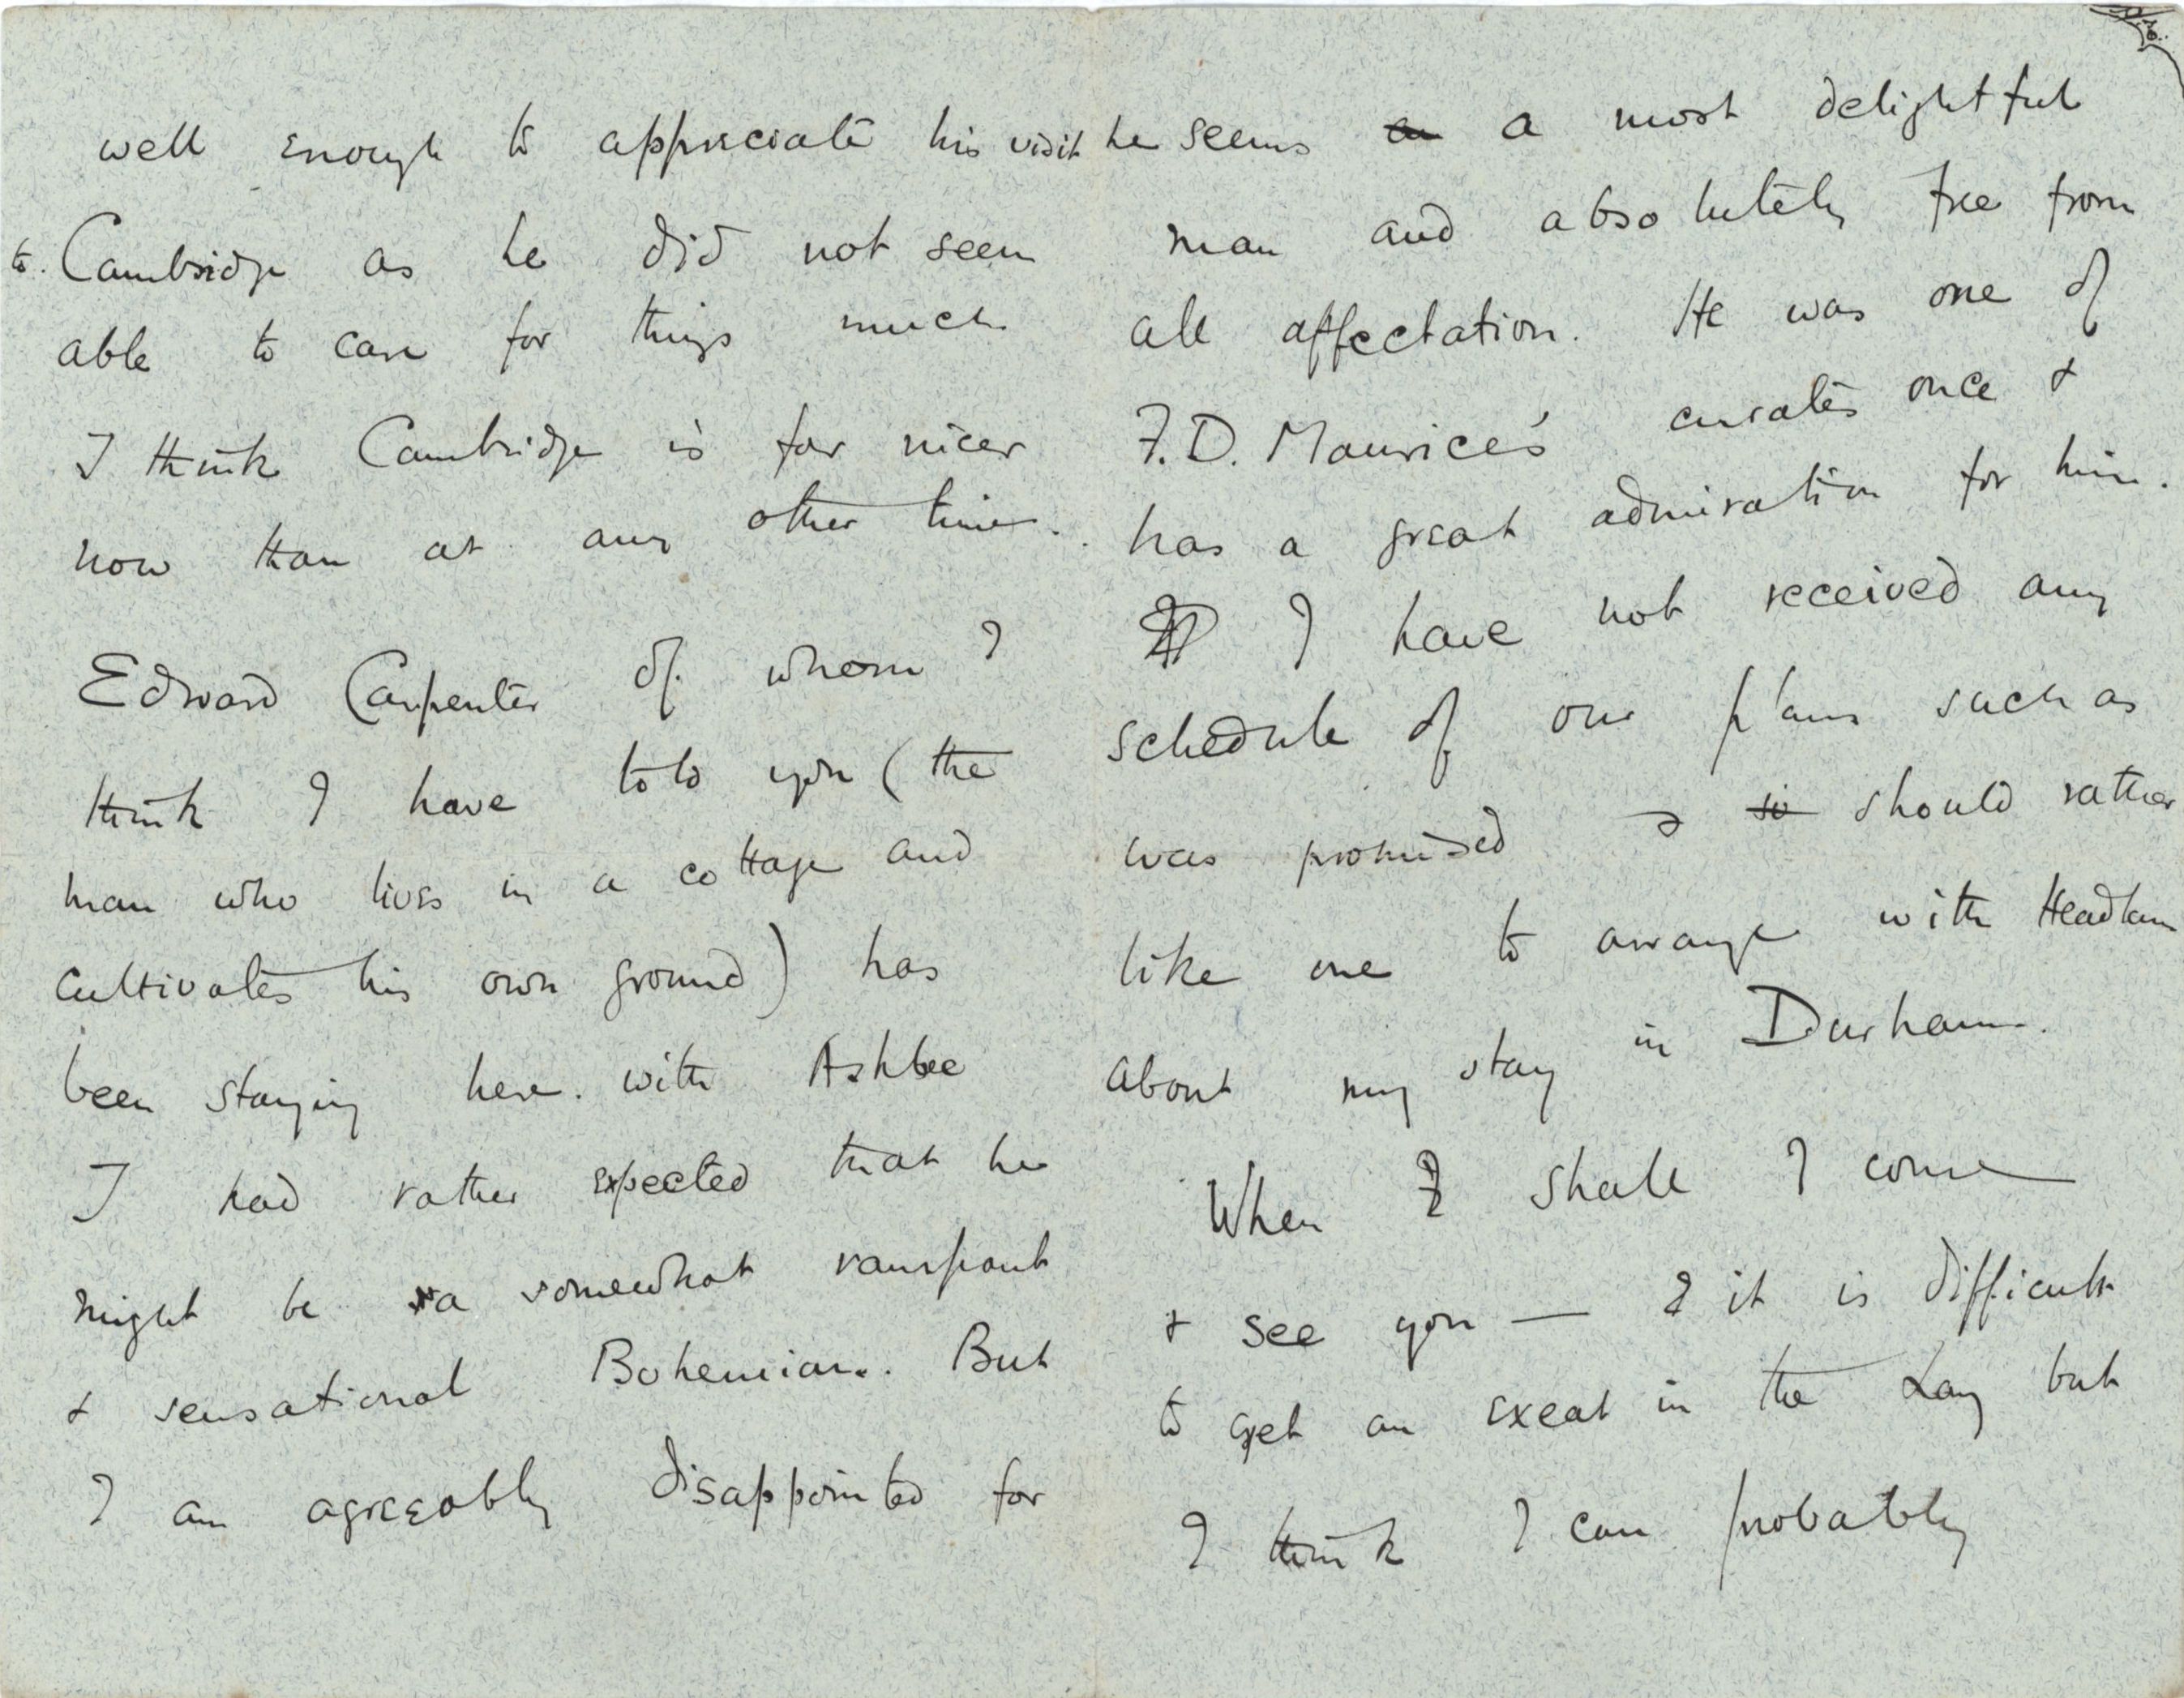 well enough to appreciate his visit
to Cambridge as he did not seem
able to care for things much
I think Cambridge is far nicer
now than at any other time.
Edward Carpenter of whom I
think I have told you (the
man who lives in a cottage and
cultivates his own ground) has
been staying here with Ashbee
I had rather expected that he
might be a somewhat rampant
& sensational Bohemian. But
I am agreeably disappointed for
he seems an a most delightful
man and absolutely free from
all affectation. He was one of
F.D. Maurice's curates once &
has a great admiration for him.
I have not received any
schedule of our plans such as
was promised & so should rather
like one to arrange with Headlam
about my stay in Durham.
When I shall I come
& see you — & it is difficult
to get an exeat in the Long but
I think I can probably